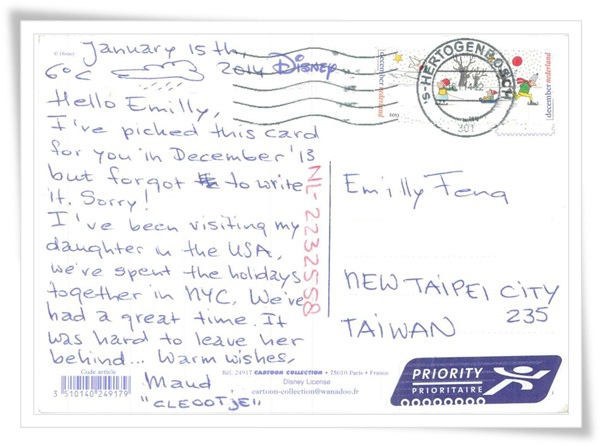 January 15th,
6°C 2014 Disney
Hello Emilly,
I've picked this card
for you in December '13
but forgot to write
it. Sorry!
I've been visiting my
daughter in the USA,
we've spent the holidays
together in NYC. We've
had a great time. It
was hard to leave her
behind... Warm wishes,
Maud
"CLEOOTJE"
NL-2232558
Emilly Feng
NEW TAIPEI CITY
235
TAIWAN
's-HERTOGENBOSCH
301
december nederland
PRIORITY
PRIORITAIRE
Code article
3 510140 249179
Réf. 24917 CARTOON COLLECTION • 75010 Paris • France
Disney License
cartoon-collection@wanadoo.fr